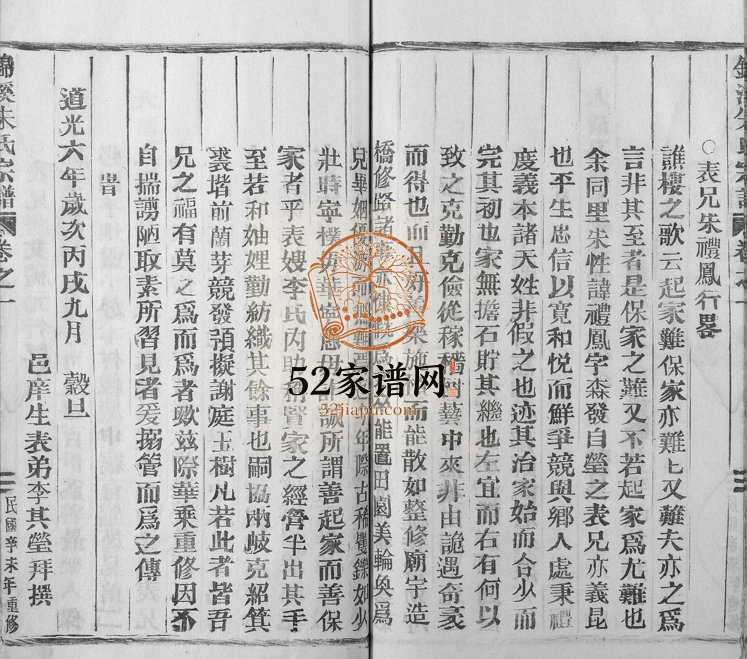 錦溪朱氏宗譜 卷之一
○表兄朱禮鳳行畧
誰樓之歌云起家難保家亦難難又難夫亦之爲
言非其至者是保家之難又不若起家爲尤難也
余同里朱性諱禮鳳字森發自瑩之表兄亦義昆
也平生忠信以竟和悦而鮮爭競與鄉人處秉禮
度義本諸天姓非假之也迹其治家始而合少而
完其初也家無擔石貯其繼也左宜而右有何以
致之克勤克儉從稼穡樹藝中來非由詭遇奇豪
而得也而且好善樂施而能散如整修廟宇造
橋修路者能置田園美輪奐爲
兒畢姻年際古稀矍鑠如少
壯時寧樸毋華誠所謂善起家而善保
家者乎表嫂李氏内助相贊家之經營半出其手
至若和妯娌勤紡織其餘事也嗣協兩岐克紹箕
裘堦前蘭芽競發預擬謝庭玉樹凡若此者皆吾
兄之福有莫之爲而爲者歟兹際華乗重修因不
自揣謭陋取素所習見者爰搦管而爲之傳
旹
道光六年歲次丙戌九月 穀旦
邑庠生表弟李其瑩拜撰
錦溪朱氏宗譜 卷之一
民國辛未年重修
52家谱网
52jiapu.com